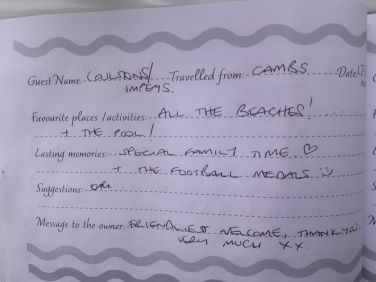 Guest Name: COULSONS/ Travelled from: CAMBS Date
IMPEYS.
Favourite places /activities: ALL THE BEACHES!
+ THE POOL!
Lasting memories: SPECIAL FAMILY TIME ♡
+ THE FOOTBALL MEDALS ☺
Suggestions:
Message to the owner: FRIENDLIEST WELCOME, THANK YOU
VERY MUCH XX